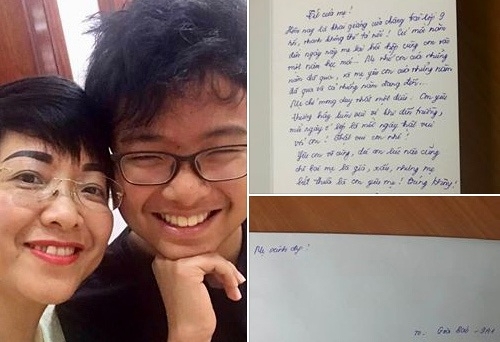 Tết của mẹ!
Hôm nay là khai giảng của chàng trai lớp 9
rồi, nhanh không thể tả nổi! Cứ mỗi năm
đến ngày này mẹ lại hồi hộp cùng con vào
một năm học mới... Mẹ nhớ con của những
năm đã qua, và mẹ yêu con của những năm
đã qua và cả những năm đang đến...
Mẹ chỉ mong duy nhất một điều. Con yêu
thương hãy luôn vui vẻ khi đến trường,
mỗi ngày ở lớp là một ngày thật vui
với con! Thật vui con nhé!
Yêu con vô cùng, dù con lúc nào cũng
chê mẹ là già, xấu, nhưng mẹ
biết thừa là con yêu mẹ! Đúng không,
Mẹ xinh đẹp!
To. Gia Bảo - 9A1